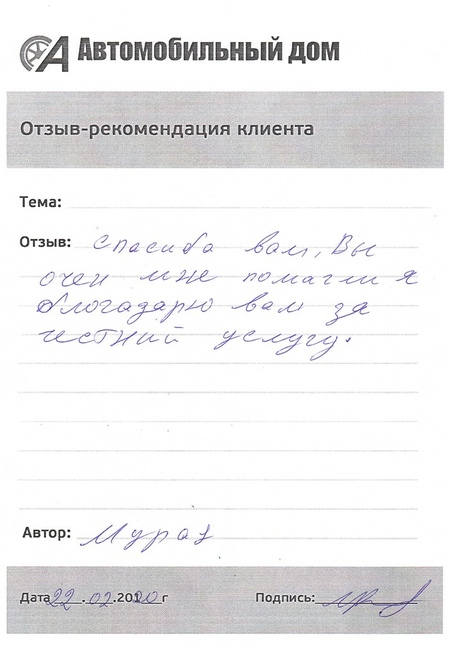 Автомобильный дом
Отзыв-рекомендация клиента
Тема:
Отзыв: Спасиба вам, Вы
очен мне помагли я
благодарю вам за
честний услугу.
Автор:
Дата 22.02.2020г Подпись: